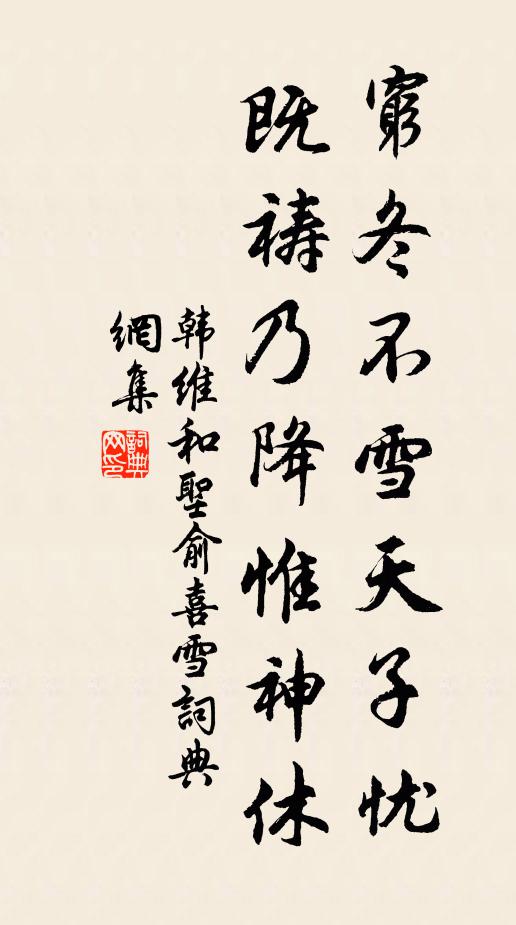 窮冬不雪天子忧
既祷乃降惟神休
韩維和聖俞喜雪詞典
網集
詞典
网印